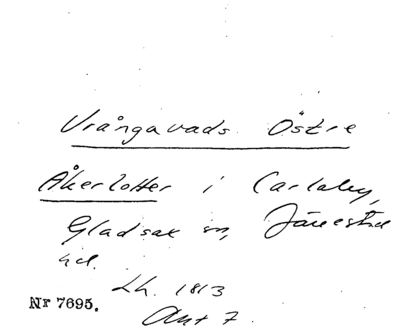 Vrångavads Östre
Åkerlotter i Carlaby,
Gladsax sn, Järrestad
hd.
Lh. 1813
Akt 7
Nr 7695.